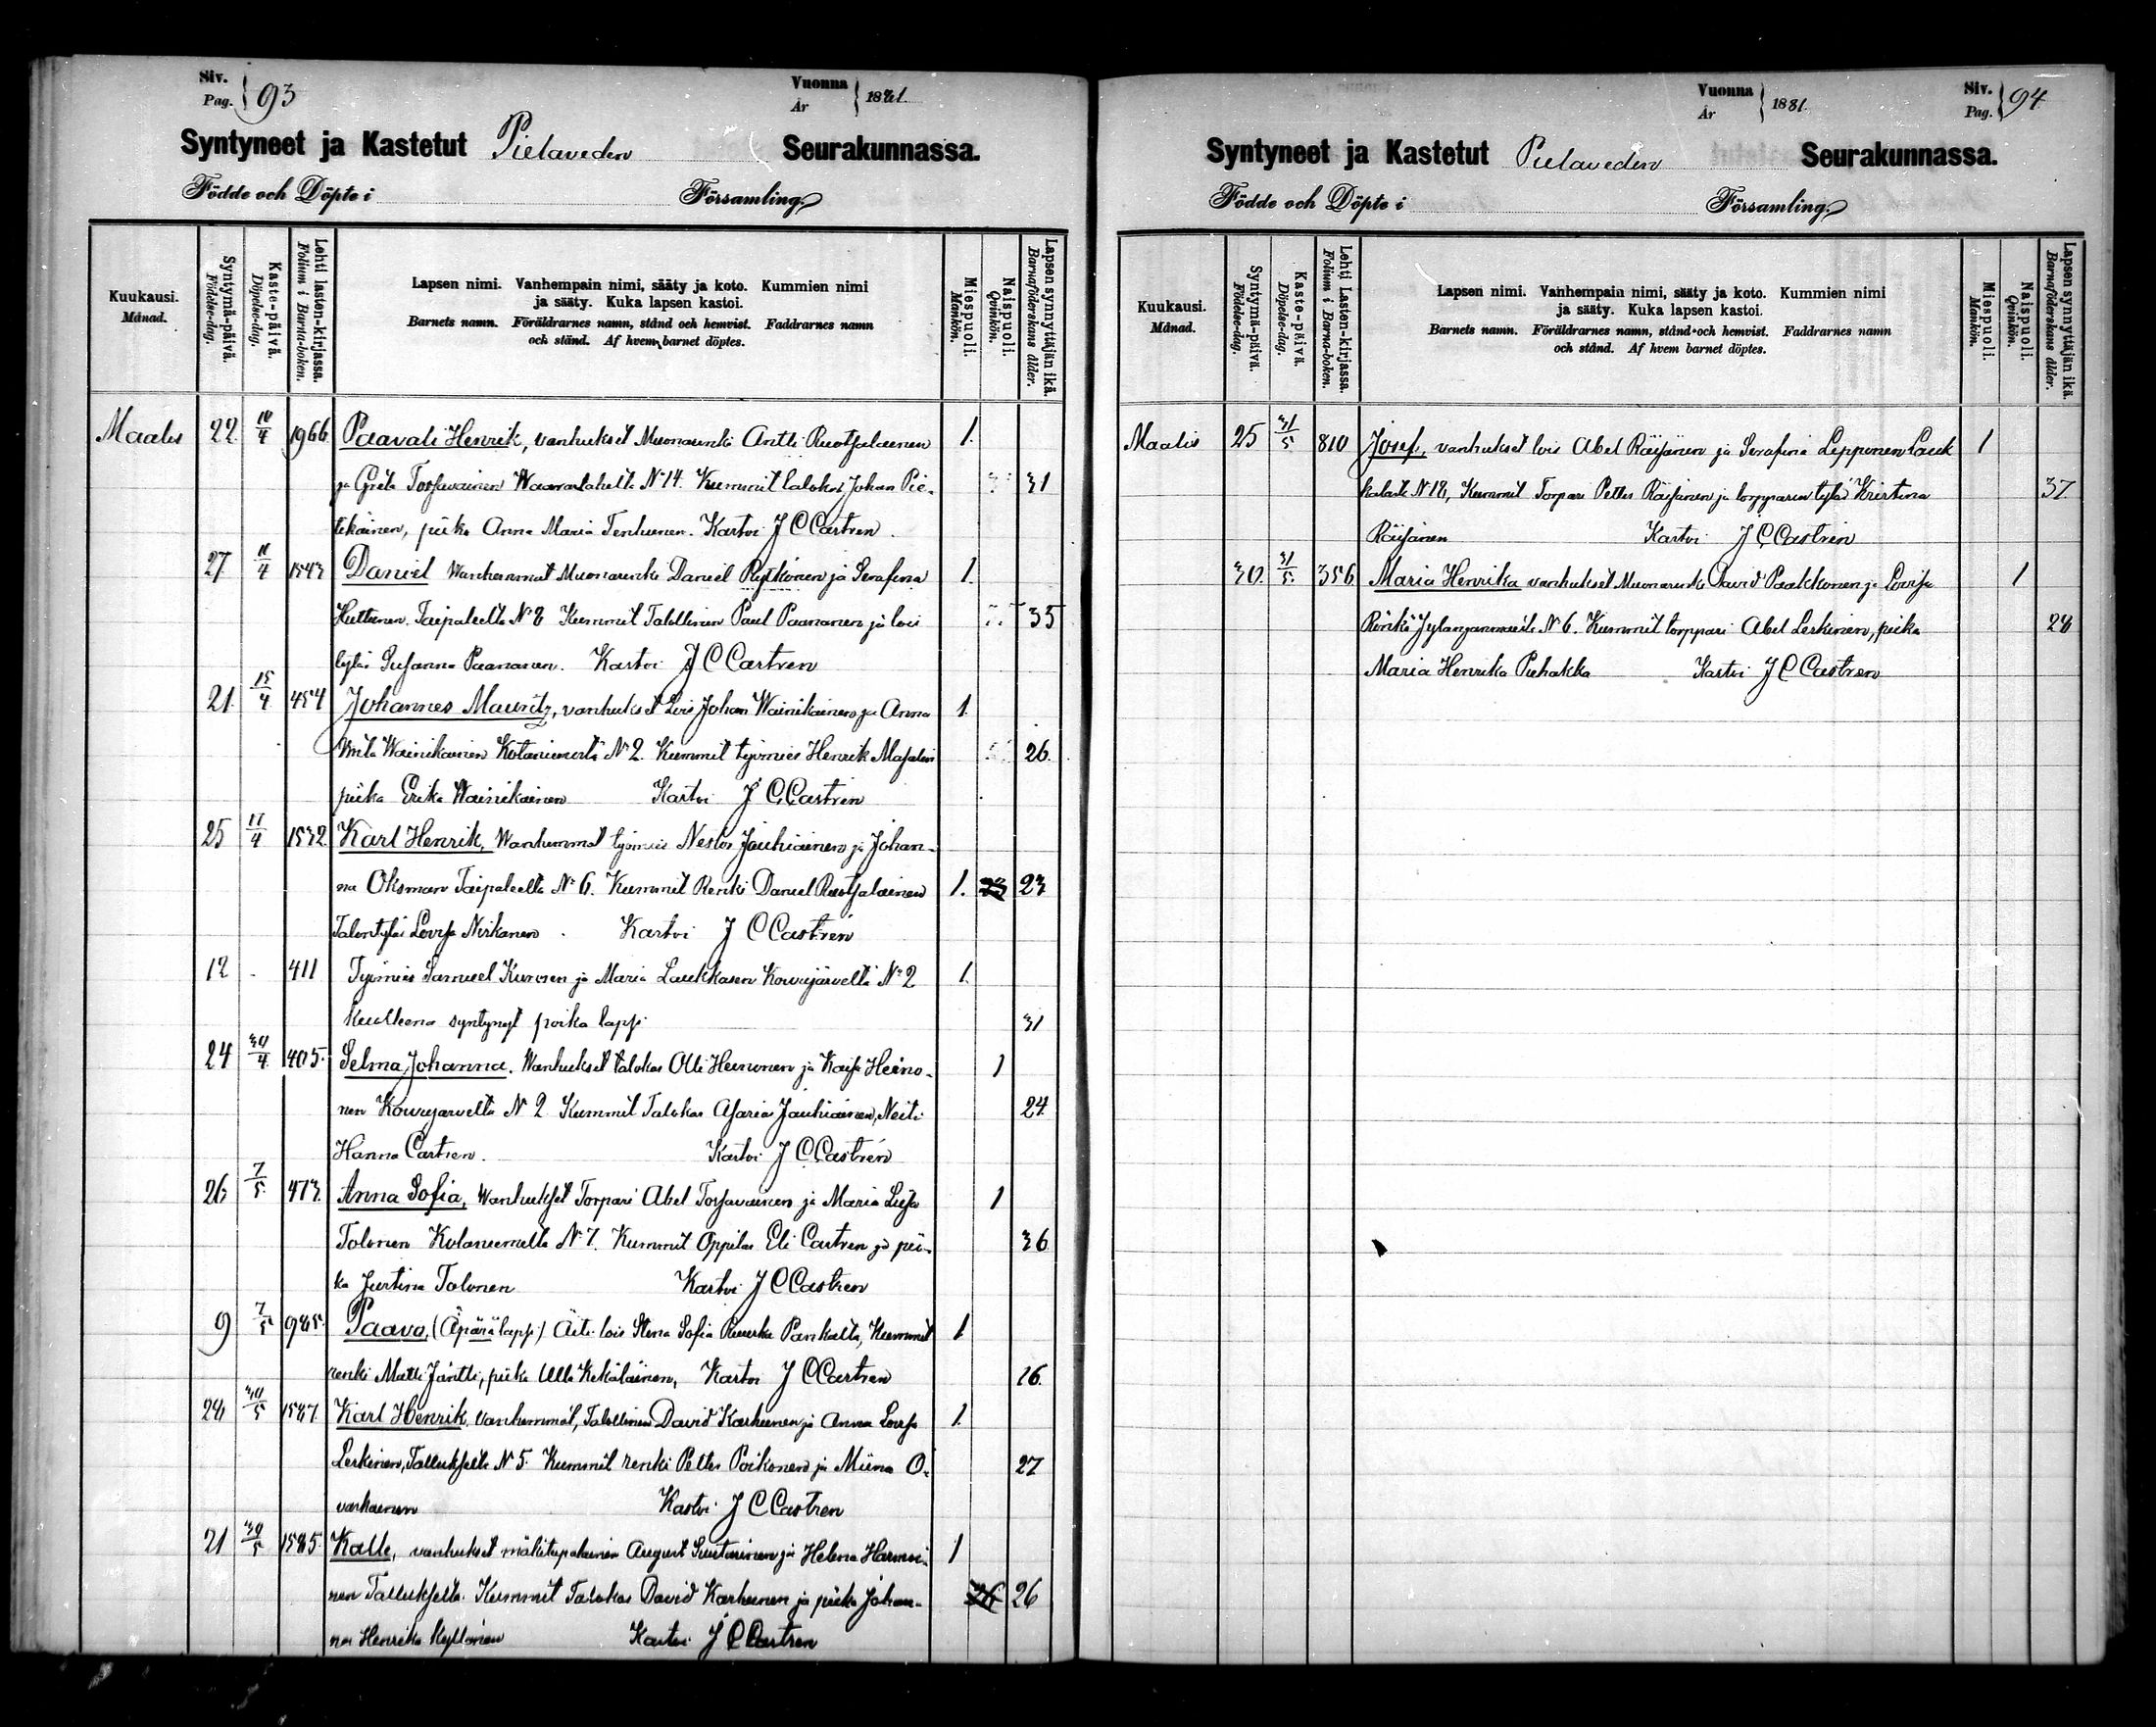 Siv.
Pag. 93
Vuonna
År 1881.
Syntyneet ja Kastetut Pielaveden Seurakunnassa.
Födde och Döpte i Församling.
Kuukausi.
Månad.
Syntymä-päivä.
Födelse-dag.
Kaste-päivä.
Döpelse-dag.
Lehti lasten-kirjassa.
Folium i Barna-boken.
Lapsen nimi. Vanhempain nimi, sääty ja koto. Kummien nimi
ja sääty. Kuka lapsen kastoi.
Barnets namn. Föräldrarnes namn, stånd och hemvist. Faddrarnes namn
och stånd. Af hvem barnet döptes.
Miespuoli.
Mankön.
Naispuoli.
Qvinkön.
Lapsen synnyttäjän ikä.
Barnaföderskans ålder.
Maalis 22. 10/4 1966. Paavali Henrik, vanhukset Muonarenki Antti Ruotsalainen 1.
ja Greta Tossavainen Waaraslahelta No 14. Kummit talokas Johan Pie- 31
tikäinen, piika Anna Maria Tenhunen. Kastoi J C Castren.
27 11/4 1543 Daniel Wanhemmat Muonarenki Daniel Rytkönen ja Serafina 1.
Huttunen Taipaleelta No 8 Kummit Talollinen Paul Paananen ja lois 35
tytär Susanna Paananen. Kastoi J C Castren
21. 15/4 454 Johannes Mauritz, vanhukset Lois Johan Wainikainen ja Anna 1.
Wainikainen Kotaniemestä No 2. Kummit työmies Henrik 26.
piika Erika Wainikainen Kastoi J C Castren
25 17/4 1532. Karl Henrik, Wanhemmat työmies Nestor Jauhiainen ja Johan-
na Oksman Taipaleelta No 6. Kummit Renki Daniel Ruotsalainen 1. 23 23
Talontytär Lovisa Niskanen. Kastoi J C Castren
12 - 411 Työmies Samuel Kurosen ja Maria Laukkasen Kowujärveltä No 2 1.
kuolleena syntynyt poika lapsi 31
24 30/4 405. Selma Johanna. Wanhukset talokas Olli Heinonen ja Kaisa Heino- 1
nen Kowujarvelta No 2 Kummit Talokas Asaria Jauhiainen, Neiti 24.
Hanna Castren. Kastoi J C Castren
26 7/5. 473. Anna Sofia, Wanhukset Torpari Abel Tossavainen ja Maria Luisa 1
Tolonen Kotaniemelta No 7. Kummit Oppilas Eli Castren ja pii- 36
ka Justina Tolonen Kastoi J C Castren
9 7/5 985. Paavo, (Äpärä lapsi) Äiti lois Stina Sofia Ruuska Pankalta, Kummit 1
renki Matti Jäntti, piika Ulla Kekäläinen, Kastoi J C Castren 16.
28 30/5 1587. Karl Henrik, Vanhemmat, Talollinen David Karhunen ja Anna Lovisa 1.
Leskinen, Talluksella No 5. Kummit renki Petter Poikonen ja Miina O- 27
Kastoi J C Castren
21 30/5 1585. Kalle, vanhukset mäkitupalainen August Suutarinen ja Helena Harmoi- 1
nen Tallukselta. Kummit Talokas David Karhunen ja piika Johan- 26 26
na Henrika Kyllönen Kastoi J C Castren
Vuonna
År 1881.
Siv.
Pag. 94
Syntyneet ja Kastetut Pielaveden Seurakunnassa.
Födde och Döpte i Församling.
Kuukausi.
Månad.
Syntymä-päivä.
Födelse-dag.
Kaste-päivä.
Döpelse-dag.
Lehti Lasten-kirjassa.
Folium i Barna-boken.
Lapsen nimi. Vanhempain nimi, sääty ja koto. Kummien nimi
ja sääty. Kuka lapsen kastoi.
Barnets namn. Föräldrarnes namn, stånd och hemvist. Faddrarnes namn
och stånd. Af hvem barnet döptes.
Miespuoli.
Mankön.
Naispuoli.
Qvinkön.
Lapsen synnyttäjän ikä.
Barnaföderskans ålder.
Maalis 25 31/5 810 Josef, vanhukset lois Abel Räisänen ja Serafina Lepponen Lauk 1
kalasta No 18, Kummit Torpari Petter Räisänen ja torpparin tytär Kristina 37
Räisänen Kastoi J C Castren
30. 31/5. 356 Maria Henrika vanhukset Muonarenki David Paakkonen ja Lovisa 1
No 6. Kummit torppari Abel Leskinen, piika 28
Maria Henrika Puhakka Kastoi J C Castren